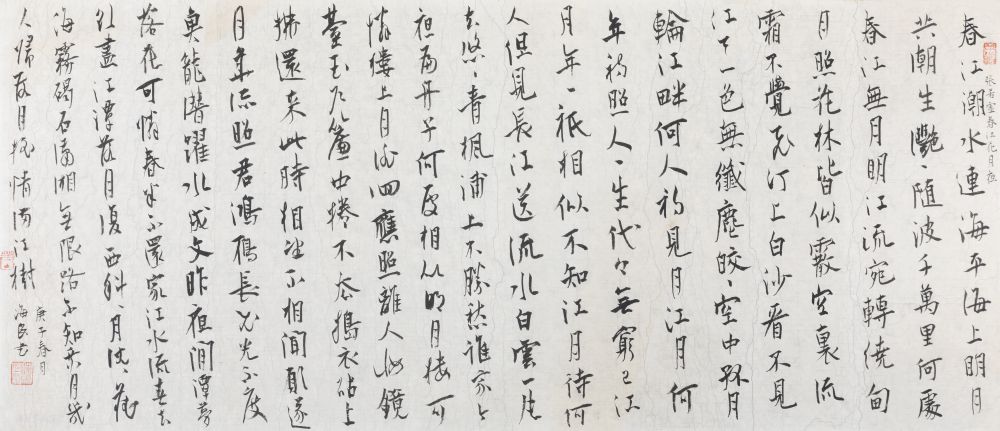 張若虛春江花月夜
春江潮水連海平海上明月
共潮生灩〻隨波千萬里何處
春江無月明江流宛轉繞甸
月照花林皆似霰空裏流
霜不覺飛汀上白沙看不見
江天一色無纖塵皎〻空中孤月
輪江畔何人初見月江月何
年初照人〻生代〻無窮已江
月年〻祇相似不知江月待何
人但見長江送流水白雲一片
去悠〻青楓浦上不勝愁誰家今
夜扁舟子何處相思明月樓可
憐樓上月徘徊應照離人妝鏡
臺玉戶簾中捲不去搗衣砧上
拂還來此時相望不相聞願逐
月華流照君鴻雁長飛光不度
魚龍潛躍水成文昨夜閒潭夢
落花可憐春半不還家江水流春去
欲盡江潭落月復西斜〻月沈〻藏
海霧碣石瀟湘無限路不知乘月幾
人歸落月搖情滿江樹
庚子春月
海民書